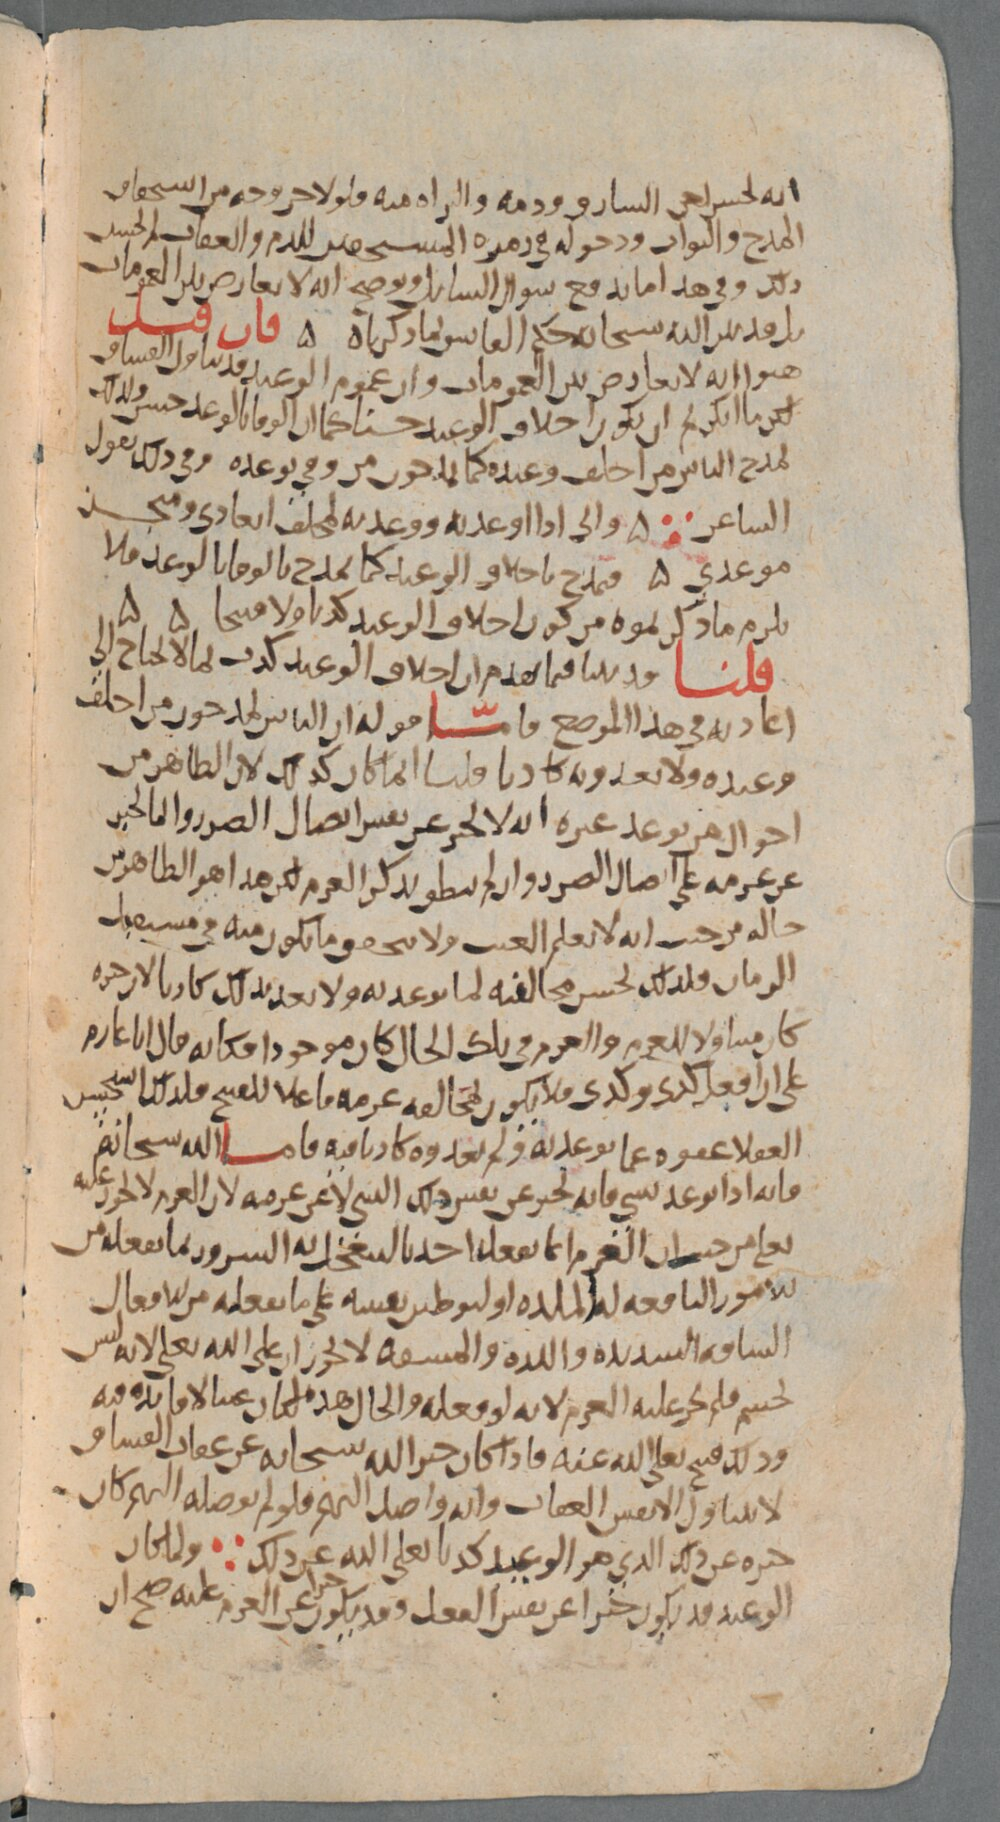 انه يحسن لعن السارق وذمه والبراه منه ولولا خروجه من استحقاق
المدح والثواب ودخوله في زمره المستحقين للذم والعقاب لم يحسن
ذلك وفي هذا ما يدفع سوال السايل ويوضح انه لا تعارض بين العمومات
بل قد بين الله سبحانه حكم الفاسق بما ذكرناه ۵ فان قيل
هبوا انه لا تعارض بين العمومات وان عموم الوعيد قد تناول الفساق
لكن ما انكرتم ان يكون اخلاف الوعيد حسنا كما ان الوفا بالوعد حسن ولذلك
يمدح الناس من اخلف وعيده كما يمدحون من وفي بوعده وفي ذلك يقول
الشاعر ۵ واني اذا اوعدته ووعدته لمخلف ايعادي ومنجز
موعدي ۵ فتمدح باخلاف الوعيد كما يمدح بالوفا بالوعد فلا
يلزم ما ذكرتموه من كون اخلاف الوعيد كذبا ولا قبيحا ۵ ۵
قلنا قد بينا فيما تقدم ان اخلاف الوعيد كذب بما لا يحتاج الى
اعادته في هذا الموضع فاما قوله ان الناس يمدحون من اخلف
وعيده ولا يعدونه كاذبا قلنا انما كان كذلك لان الظاهر من
احوال من توعد غيره انه لا يخبر عن نفس ايصال الضرر وانما يخبر
عن عزمه على ايصال الضرر وان لم ينطق بذكر العزم لكن هذا هو الظاهر من
حاله من حيث انه لا يعلم الغيب ولا يتحقق ما يكون منه في مستقبل
الزمان فلذلك يحسن مخالفته لما توعد به ولا يعد بذلك كاذبا لان خبره
كان متناولا للعزم والعزم في تلك الحال كان موجودا فكانه قال انا عازم
على ان افعل كذي وكذي فلا يكون لمخالفه عزمه فاعلا للقبيح فلذلك استحسن
العقلا عفوه عما توعد به ولم يعدوه كاذبا فيه فاما الله سبحانه
فانه اذا توعد بشي فانه يخبر عن نفس ذلك الشي لا عن عزمه لان العزم لا يجوز عليه
تعلى من حيث ان العزم انما يفعله احدنا ليتعجل به السرور بما يفعله من
الامور النافعه له الملذه او ليوطن نفسه على ما يفعله من الافعال
الشاقه الشديده واللذه والمشقه لا تجوزان على الله تعلى لانه ليس
بجسم فلم يجز عليه العزم لانه لو فعله والحال هذه لكان عبثا لا فايده فيه
وذلك قبيح تعلى الله عنه فاذا كان خبر الله سبحانه عن عقاب الفساق
لا يتناول الا نفس العقاب وانه واصل اليهم فلو لم يوصله اليهم كان
خبره عن ذلك الذي هو الوعيد كذبا تعلى الله عن ذلك ولما كان
الوعيد قد يكون خبرا عن نفس الفعل وقد يكون خبرا عن العزم عليه صح ان